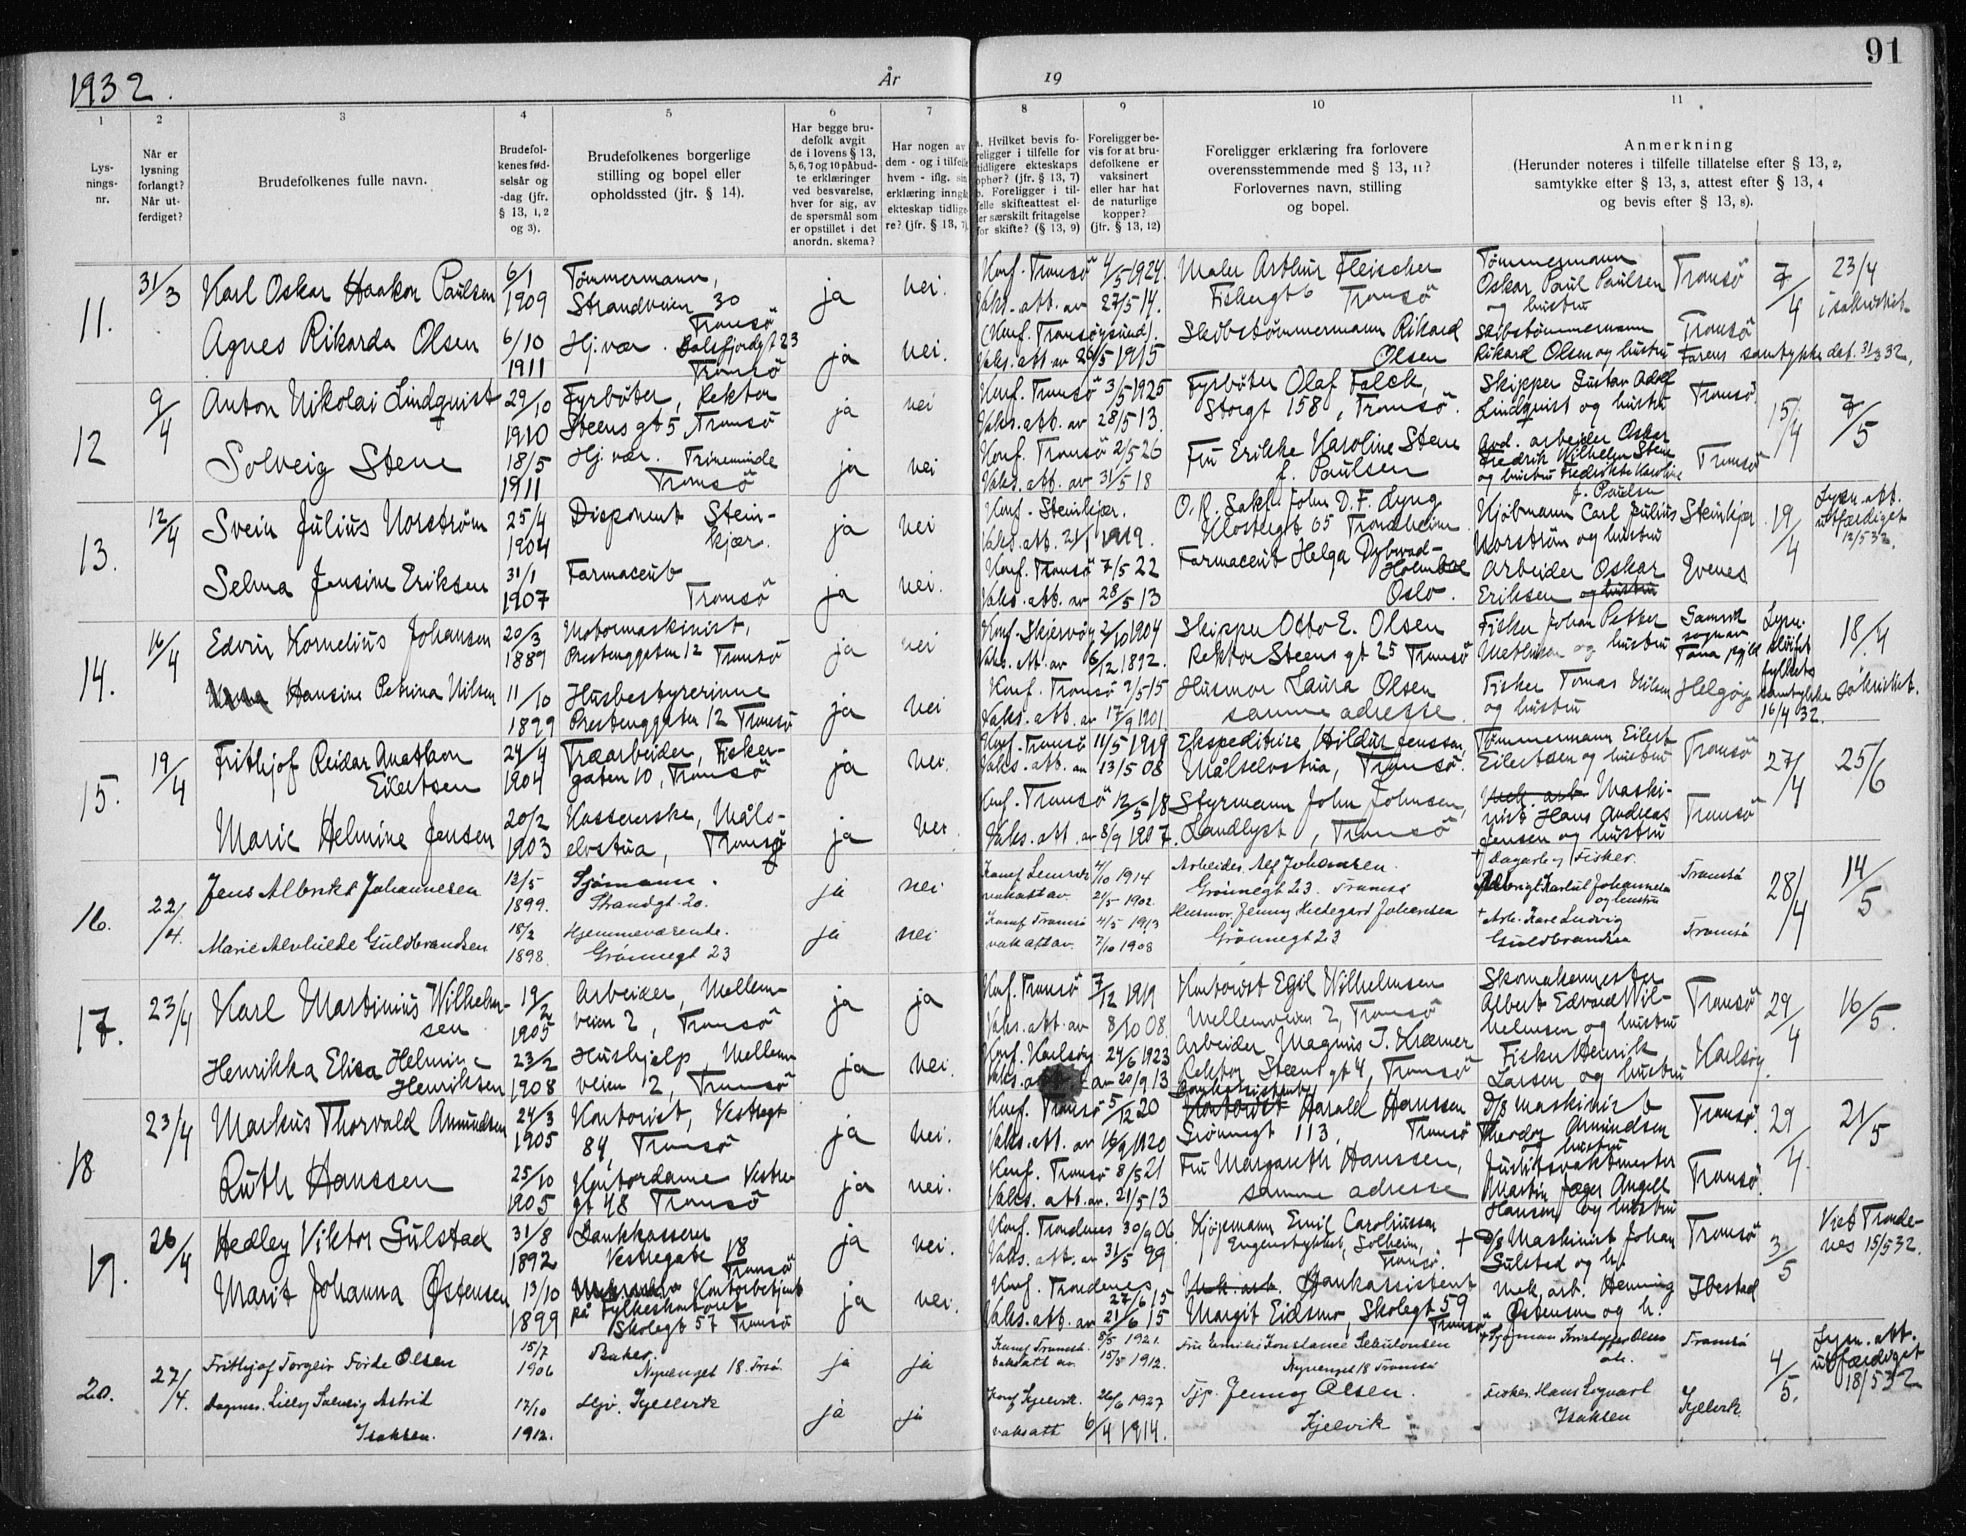 1932.
År
19
91
1
2
3
4
5
6
7
8
9
10
11
Lys-
nings-
nr.
Når er
lysning
forlangt?
Når ut-
ferdiget?
Brudefolkenes fulle navn.
Brudefol-
kenes fød-
selsår og
-dag (jfr.
§ 13, 1, 2
og 3).
Brudefolkenes borgerlige
stilling og bopel eller
opholdssted (jfr. § 14).
Har begge bru-
defolk avgit
de i lovens § 13,
5, 6, 7 og 10 påbud-
te erklæringer
ved besvarelse,
hver for sig, av
de spørsmål som
er opstillet i det
anordn. skema?
Har nogen av
dem - og i tilfelle
hvem - iflg. sin
erklæring inngått
ekteskap tidlige-
re? (jfr. § 13, 7)
a. Hvilket bevis fo-
religger i tilfelle for
tidligere ekteskaps
ophør? (jfr. § 13, 7)
b. Foreligger i til-
felle skifteattest el-
ler særskilt fritagelse
for skifte? (§ 13, 9)
Foreligger be-
vis for at bru-
defolkene er
vaksinert
eller har hat
de naturlige
kopper?
(jfr. § 13, 12)
Foreligger erklæring fra forlovere
overensstemmende med § 13, 11?
Forlovernes navn, stilling
og bopel.
Anmerkning
(Herunder noteres i tilfelle tillatelse efter § 13, 2,
samtykke efter § 13, 3, attest efter § 13, 4
og bevis efter § 13, 8).
11.
31/3
Karl Oskar Haakon Paulsen
6/1
1909
Tømmermann,
Strandveien 30
Tromsö
ja
nei.
Konf. Tromsö 4/5 1924.
Vaks. att. av 27/5 14.
Maler Arthur Fleischer
Fiskergt 6 Tromsö
Tømmermann
Oskar Paul Paulsen
og hustru
Tromsö
7/4
23/4
i sakristiet
Agnes Rikarda Olsen
6/10
1911
Hj.vær. Balsfjordgt 23
Tromsö
ja
nei.
(Konf. Tromsøysund).
Vaks. att av 26/5 1915
Skibstømmermann Rikard
Olsen
Skibstømmermann
Rikard Olsen og hustru
Tromsö
Farens samtykke dat. 31/3 32.
12
9/4
Anton Nikolai Lindquist
29/10
1910
Fyrbøter, Rektor
Steens gt 5 Tromsö
ja
nei
Konf. Tromsö 3/5 1925
Vaks. att. av 28/5 13.
Fyrbøter Olaf Falck,
Storgt 158, Tromsö.
Skipper Gustav Adolf
Lindquist og hustru
Tromsö.
15/4
7/5
Solveig Stene
18/5
1911
Hj.vær. Trineminde
Tromsö
ja
nei
Konf. Tromsö 2/5 26
Vaks. att. av 31/5 18
Fru Erikke Karoline Stene
f. Paulsen
Avd. arbeider Oskar
Fredrik Wilhelm Stene
og hustru Fredrikke Karoline
f. Paulsen
Tromsö
13.
12/4
Svein Julius Norstrøm
25/4
1904
Disponent Stein-
kjær.
ja
nei
Konf. Steinkjær.
Vaks. att. 21/1 1919.
O.R. Sakf. John D. F. Lyng
Klostergt 65 Trondheim
Kjøbmann Carl Julius
Norstrøm og hustru
Steinkjær
19/4
Lysn. att.
utfærdiget
12/5 32.
Selma Jensine Eriksen
31/1
1907
Farmaceut
Tromsö
ja
nei.
Konf. Tromsö 7/5 22
Vaks. att. av 28/5 13
Farmaceut Helga Dybwad-
Holmboe
Oslo.
Arbeider Oskar
Eriksen og hustru
Evenes
14.
16/4
Edvin Kornelius Johansen
20/3
1887
Motormaskinist,
Prestenggaten 12 Tromsö
ja
nei
Konf. Skjervøy 2/10 1904
Vaks. att. av 6/2 1892.
Skipper Otto E. Olsen
Rektor Steens gt 25 Tromsö
Fisker Johan Petter
og hustru
Tana
Lysn.
fylkets
samtykke
16/4 32.
18/4
Hansine Petrina Nilsen
11/10
1899
Husbestyrerinne
Prestenggaten 12 Tromsö
ja
nei
Konf. Tromsö 2/5 15
Vaks. att. av 17/9 1901.
Husmor Laura Olsen
samme adresse.
Fisker Tomas Nilsen
og hustru
Helgøy
sakristiet.
15.
19/4
Frithjof Reidar Anathon
Eilertsen
24/4
1904
Træarbeider, Fisker-
gaten 10, Tromsö
ja
nei.
Konf. Tromsö 11/5 1919
Vaks. att. av 13/5 08
Ekspeditrise Hildur Jenssen,
Målselvstua, Tromsö.
Tømmermann Eilert
Eilertsen og hustru
Tromsö
27/4
25/6
Marie Helmine Jensen
20/2
1903
Kassererske, Måls-
elvstua, Tromsö
ja
nei.
Konf. Tromsö 12/5 18
Vaks. att. av 8/9 1907.
Styrmann John Johnsen,
Landlyst, Tromsö
Mek. arb. Maski-
nist Hans Andreas
Jensen og hustru
Tromsö
16.
22/4.
Jens Albrikt Johannesen
12/5
1899.
Sjømann.
Strandgt. 20.
ja
nei
4/10 1914
vakatt av. 21/5 1902.
Arbeider Alf Johansen.
Grönnegt 23. Tromsö
+ Dagarb. og Fisker.
Johannesen
og hustru
Tromsö
28/4
14/5
Marie Alvhilde Guldbrandsen
18/2
1898.
Hjemmeværende.
Grönnegt 23
ja
nei
Konf Tromsö 4/5 1913
vak att av. 7/10 1908
Husmor Jenny Hildegard Johansen
Grönnegt 23
+ Arb. Kare Ludvig
Guldbrandsen
Tromsö
17.
23/4
Karl Martinius Wilhelm-
sen
19/2
1905
Arbeider, Mellem-
veien 2, Tromsö
ja
ja
Konf. Tromsö 7/12 1919
Vaks. att. av 8/10 08
Kontorist Egil Wilhelmsen
Mellemveien 2, Tromsö
Skomakermester
Albert Edvard Wil-
helmsen og hustru
Tromsö
29/4
16/5.
Henrikka Elisa Helmine
Henriksen
23/2
1908
Hushjelp, Mellem
veien 2, Tromsö
ja
nei.
Konf. Karlsøy 24/6 1923
Vaks. att av 20/9 13
Arbeider Magnus J. Kræmer
Rektor Steens gt 4, Tromsö
Fisker Henrik
Larsen og hustru
Karlsøy
18
23/4
Markus Thorvald Amundsen
24/3
1905
Kontorist, Vestregt
89, Tromsö
ja
nei.
Konf. Tromsö 5/12 20
Vaks. att. av 16/9 1920
Bankassistent
Kontorist Harald Hanssen
Grönnegt 113, Tromsö
D/S maskinist
Theodor Amundsen
og hustru
Tromsö.
29/4.
21/5
Ruth Hanssen
25/10
1905
Kontordame Vestre-
gt 48 Tromsö
ja
nei.
Konf. Tromsö 8/5 21
Vaks. att. av. 21/5 13
Fru Margareth Hanssen,
samme adresse
Justitsvaktmester
Martin Jæger Angell
Hansen og hustru
Tromsö.
19.
26/4
Hedley Viktor Sulstad
31/8
1892
Bankkasserer
Vestregate 18
Tromsö
ja
nei.
Konf. Trondenes 30/9 06.
Vaks. att. av 31/5 99
Kjøpmann Emil Caroliussen
Solheim,
Tromsö.
+ D/S Maskinist Johan
Sulstad og h.
Tromsö
3/5
Viet Tronde-
nes 15/5 32.
Marit Johanna Østensen
13/10
1899
Kontorbetjent
på fylkeskontoret
Skolegt 57 Tromsö
ja
nei.
Konf. Trondenes
27/6 15
Vaks. att. av 21/6 15
Mek. arb. Bankassistent
Margit Eidsmo, Skolegt 59
Tromsö
Mek. arb. Henning
Østensen og h.
Ibestad
20.
27/4.
Frithjof Torgeir Förde Olsen
15/7
1906
Baker.
Nyvænget 18. Trsö.
ja
ja
8/5 1921.
vaksatt av. 15/5 1912.
Fru Emilie Konstance
Nyvænget 18 Tromsö
+ Sjømann Kristoffer Olsen
Tromsö
4/5.
Lysn. att.
utfærdiget
18/5 32
Dagmar. Lilly Solveig Astrid
Isaksen.
17/10
1912.
Hjv. Kjelvik
ja
ja
Konf Kjelvik. 26/6 1927
vaksatt 6/4 1914.
Tjp. Jenny Olsen.
Kjelvik
Fisker. Hans Sigvart
Isaksen
Kjelvik